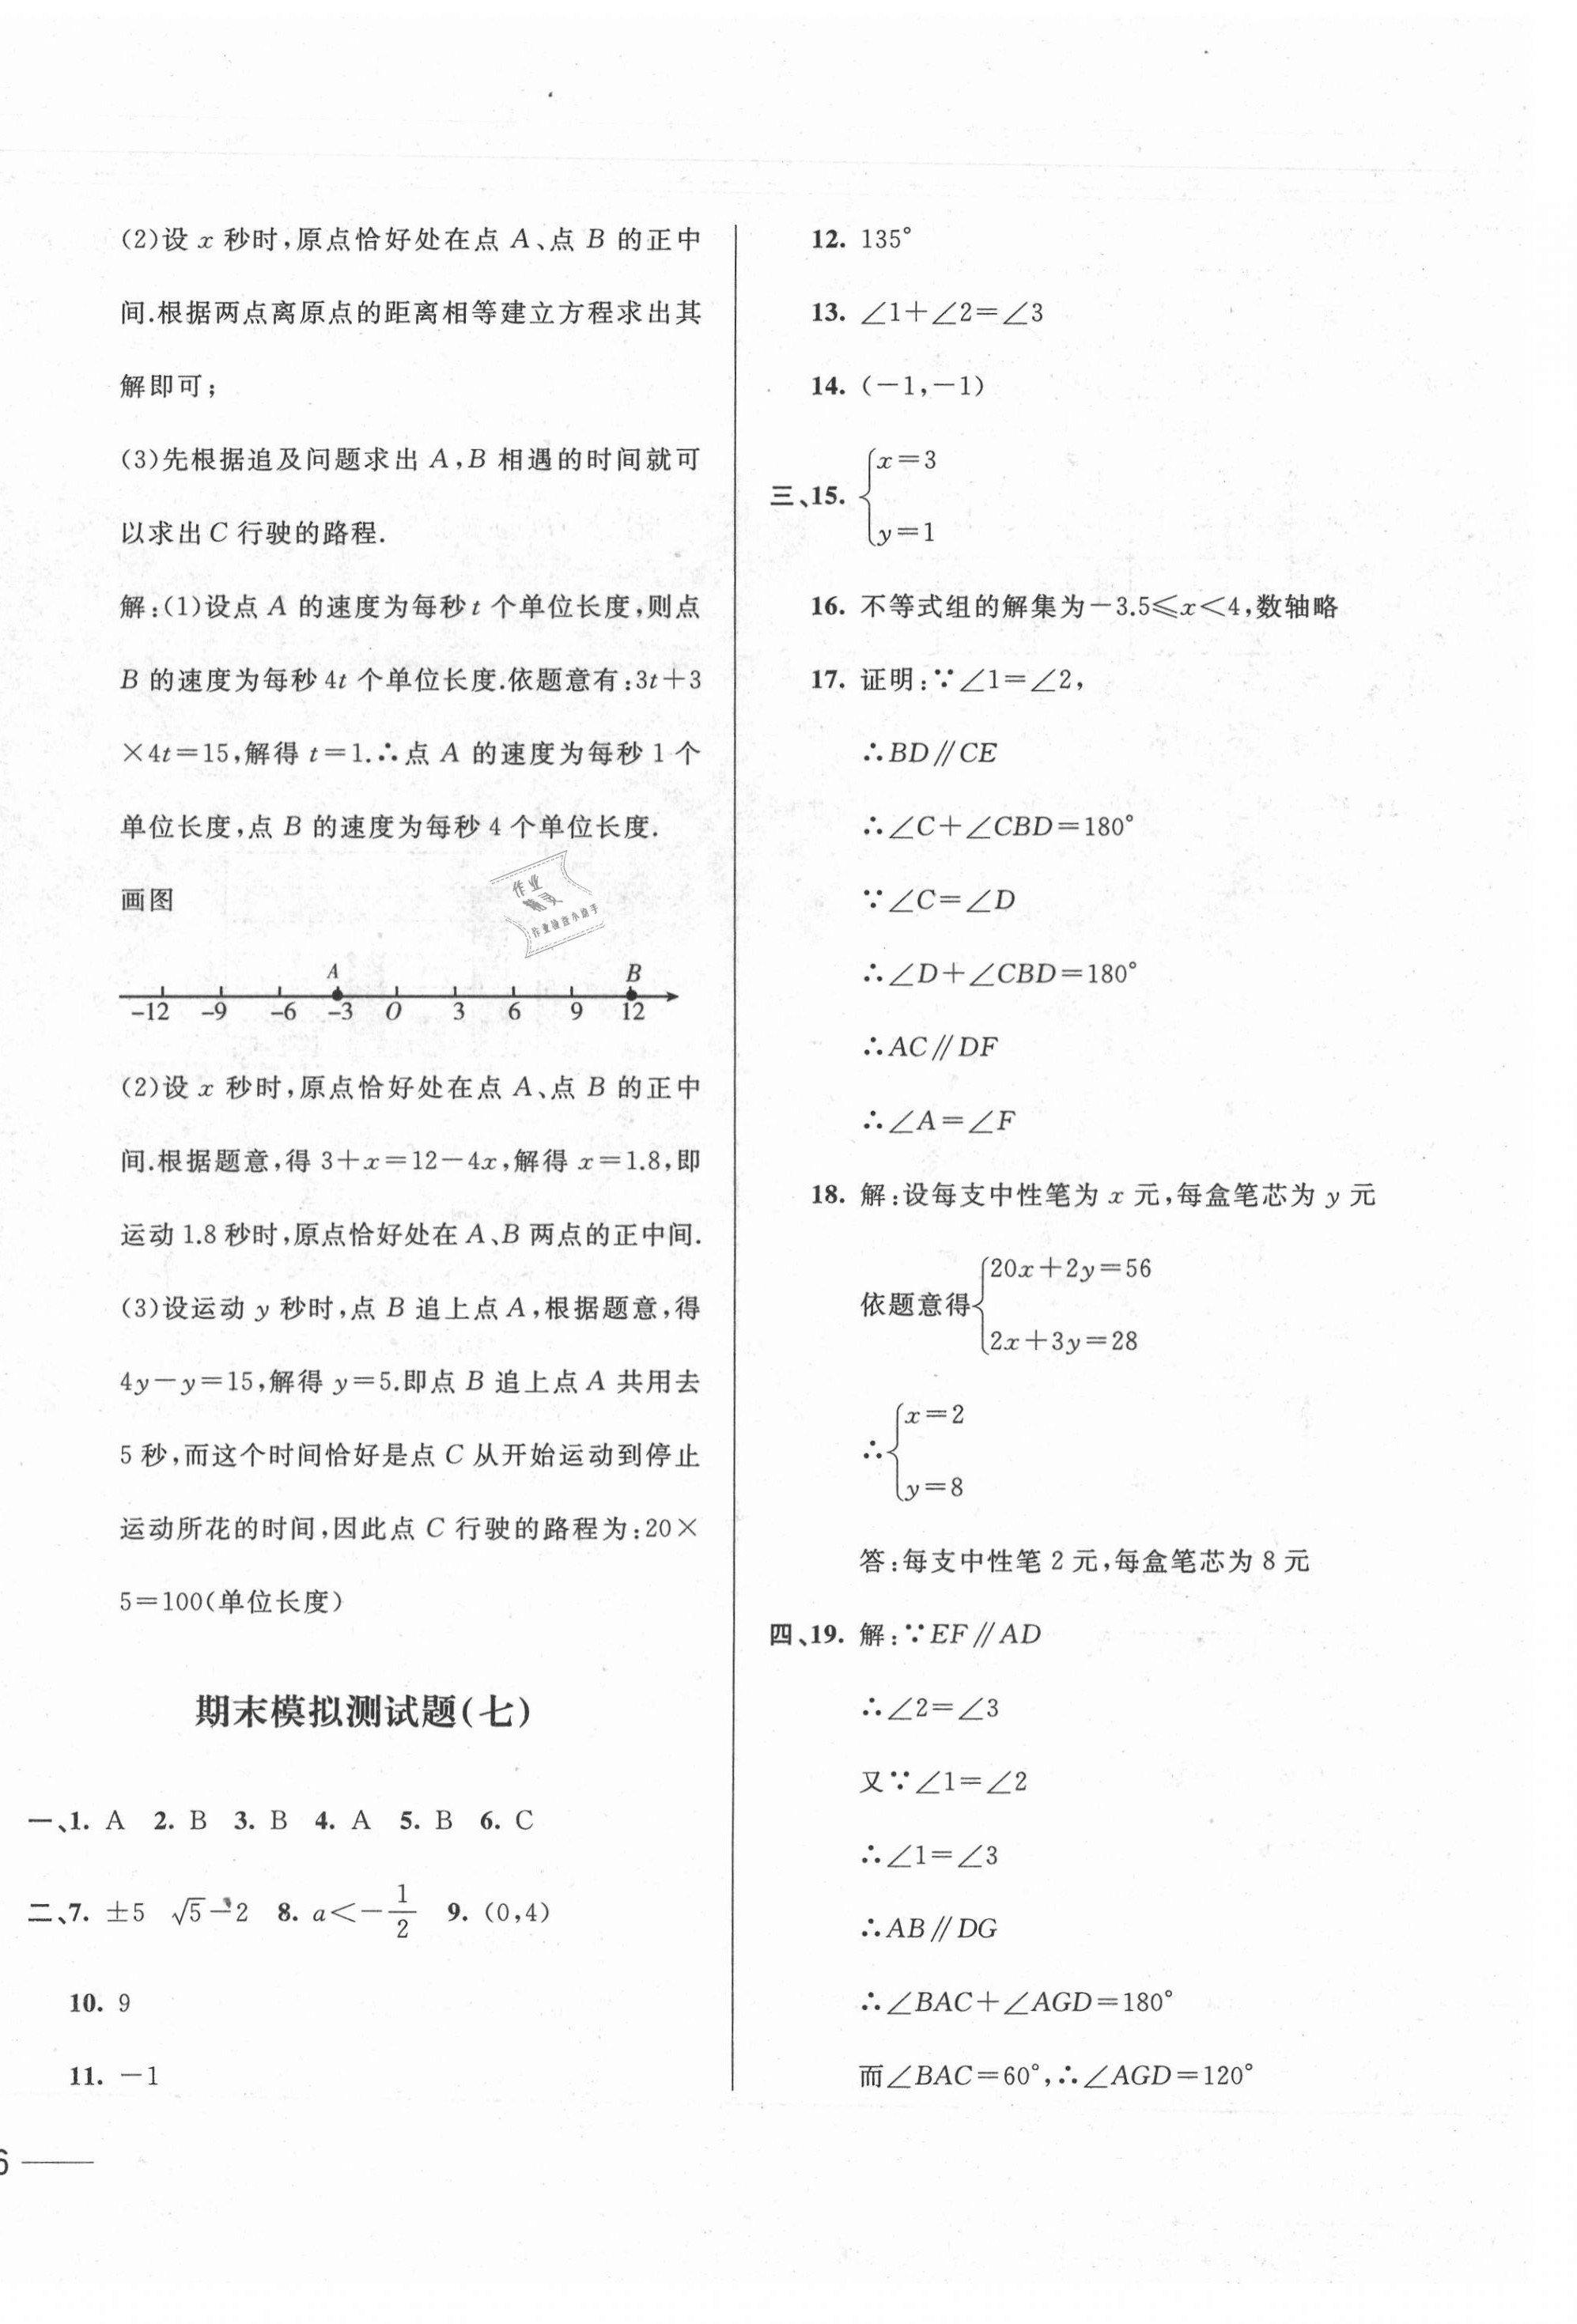 (2)设 x 秒时,原点恰好处在点 A、点 B 的正中
间.根据两点离原点的距离相等建立方程求出其
解即可;
(3)先根据追及问题求出 A,B 相遇的时间就可
以求出 C 行驶的路程.
解:(1)设点 A 的速度为每秒 t 个单位长度,则点
B 的速度为每秒 4t 个单位长度.依题意有:3t+3
×4t=15,解得 t=1.∴点 A 的速度为每秒 1 个
单位长度,点 B 的速度为每秒 4 个单位长度.
画图
A B
-12 -9 -6 -3 O 3 6 9 12
(2)设 x 秒时,原点恰好处在点 A、点 B 的正中
间.根据题意,得 3+x=12-4x,解得 x=1.8,即
运动 1.8 秒时,原点恰好处在 A、B 两点的正中间.
(3)设运动 y 秒时,点 B 追上点 A,根据题意,得
4y-y=15,解得 y=5.即点 B 追上点 A 共用去
5 秒,而这个时间恰好是点 C 从开始运动到停止
运动所花的时间,因此点 C 行驶的路程为:20×
5=100(单位长度)
期末模拟测试题(七)
一、1. A 2. B 3. B 4. A 5. B 6. C
二、7. ±5 √5-2 8. a<-1/2 9. (0,4)
10. 9
11. -1
6
12. 135°
13. ∠1+∠2=∠3
14. (-1,-1)
三、15. {x=3
y=1
16. 不等式组的解集为-3.5≤x<4,数轴略
17. 证明:∵∠1=∠2,
∴BD∥CE
∴∠C+∠CBD=180°
∵∠C=∠D
∴∠D+∠CBD=180°
∴AC∥DF
∴∠A=∠F
18. 解:设每支中性笔为 x 元,每盒笔芯为 y 元
依题意得{20x+2y=56
2x+3y=28
∴{x=2
y=8
答:每支中性笔 2 元,每盒笔芯为 8 元
四、19. 解:∵EF∥AD
∴∠2=∠3
又∵∠1=∠2
∴∠1=∠3
∴AB∥DG
∴∠BAC+∠AGD=180°
而∠BAC=60°,∴∠AGD=120°